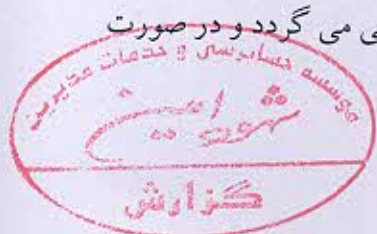 ی می گردد و در صورت
موسسه حسابرسی و خدمات مدیریت
شهود امین
گزارش